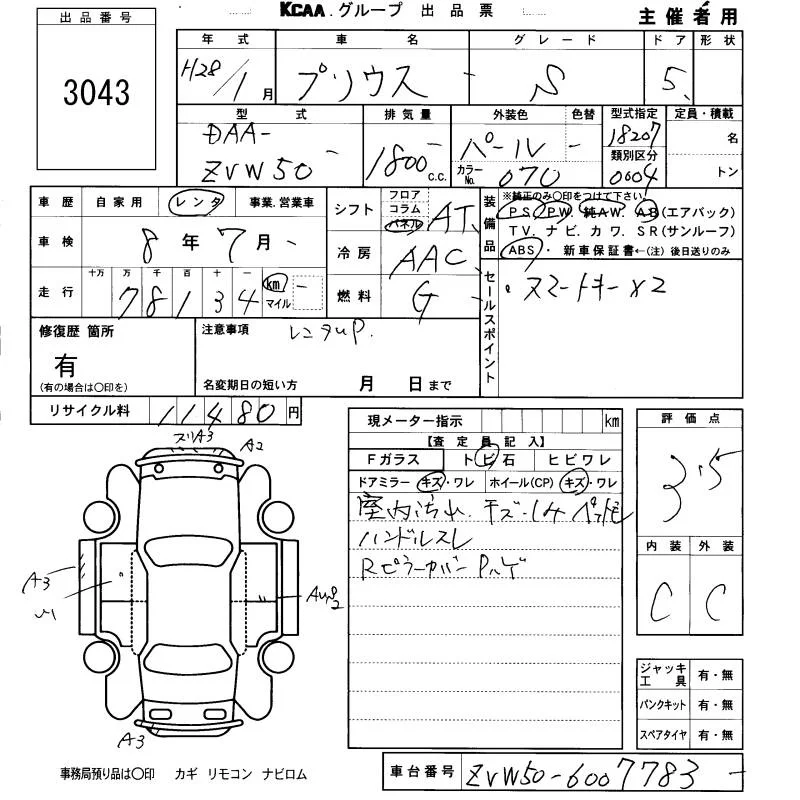 KCAA.グループ 出品票
主催者用
出品番号
3043
年式 車名 グレード ドア 形状
H28/1月 プリウス - S 5
型式 排気量 外装色 色替 型式指定 定員・積載
DAA-
ZVW50 - 1800 c.c. パール - 18207 名
カラーNo. 070 類別区分 0004 トン
車歴 自家用 レンタ 事業.営業車
車検 8年7月 -
走行 十万 万 千 百 十 一
78134 km マイル -
シフト フロア コラム パネル AT
冷房 AAC
燃料 G
装備品 ※純正のみ○印をつけて下さい
PS PW 純AW. AB(エアバック)
TV. ナビ. カワ. SR(サンルーフ)
ABS ・ 新車保証書←(注)後日送りのみ
セールスポイント
・スマートキーX2
修復歴 箇所
有
(有の場合は○印を)
注意事項 レンタUP.
名変期日の短い方 月 日まで
リサイクル料 11480円
現メーター指示 km
【査定員記入】
Fガラス トビ石 ヒビワレ
ドアミラー キズ・ワレ ホイール(CP) キズ・ワレ
室内汚れ. キズ・シミ
ハンドルスレ
Rピラーカバーハゲ
評価点
3.5
内装 外装
C C
ジャッキ工具 有・無
パンクキット 有・無
スペアタイヤ 有・無
スリA3 A2
A3
A3
事務局預り品は○印 カギ リモコン ナビロム
車台番号 ZVW50-6007783 -